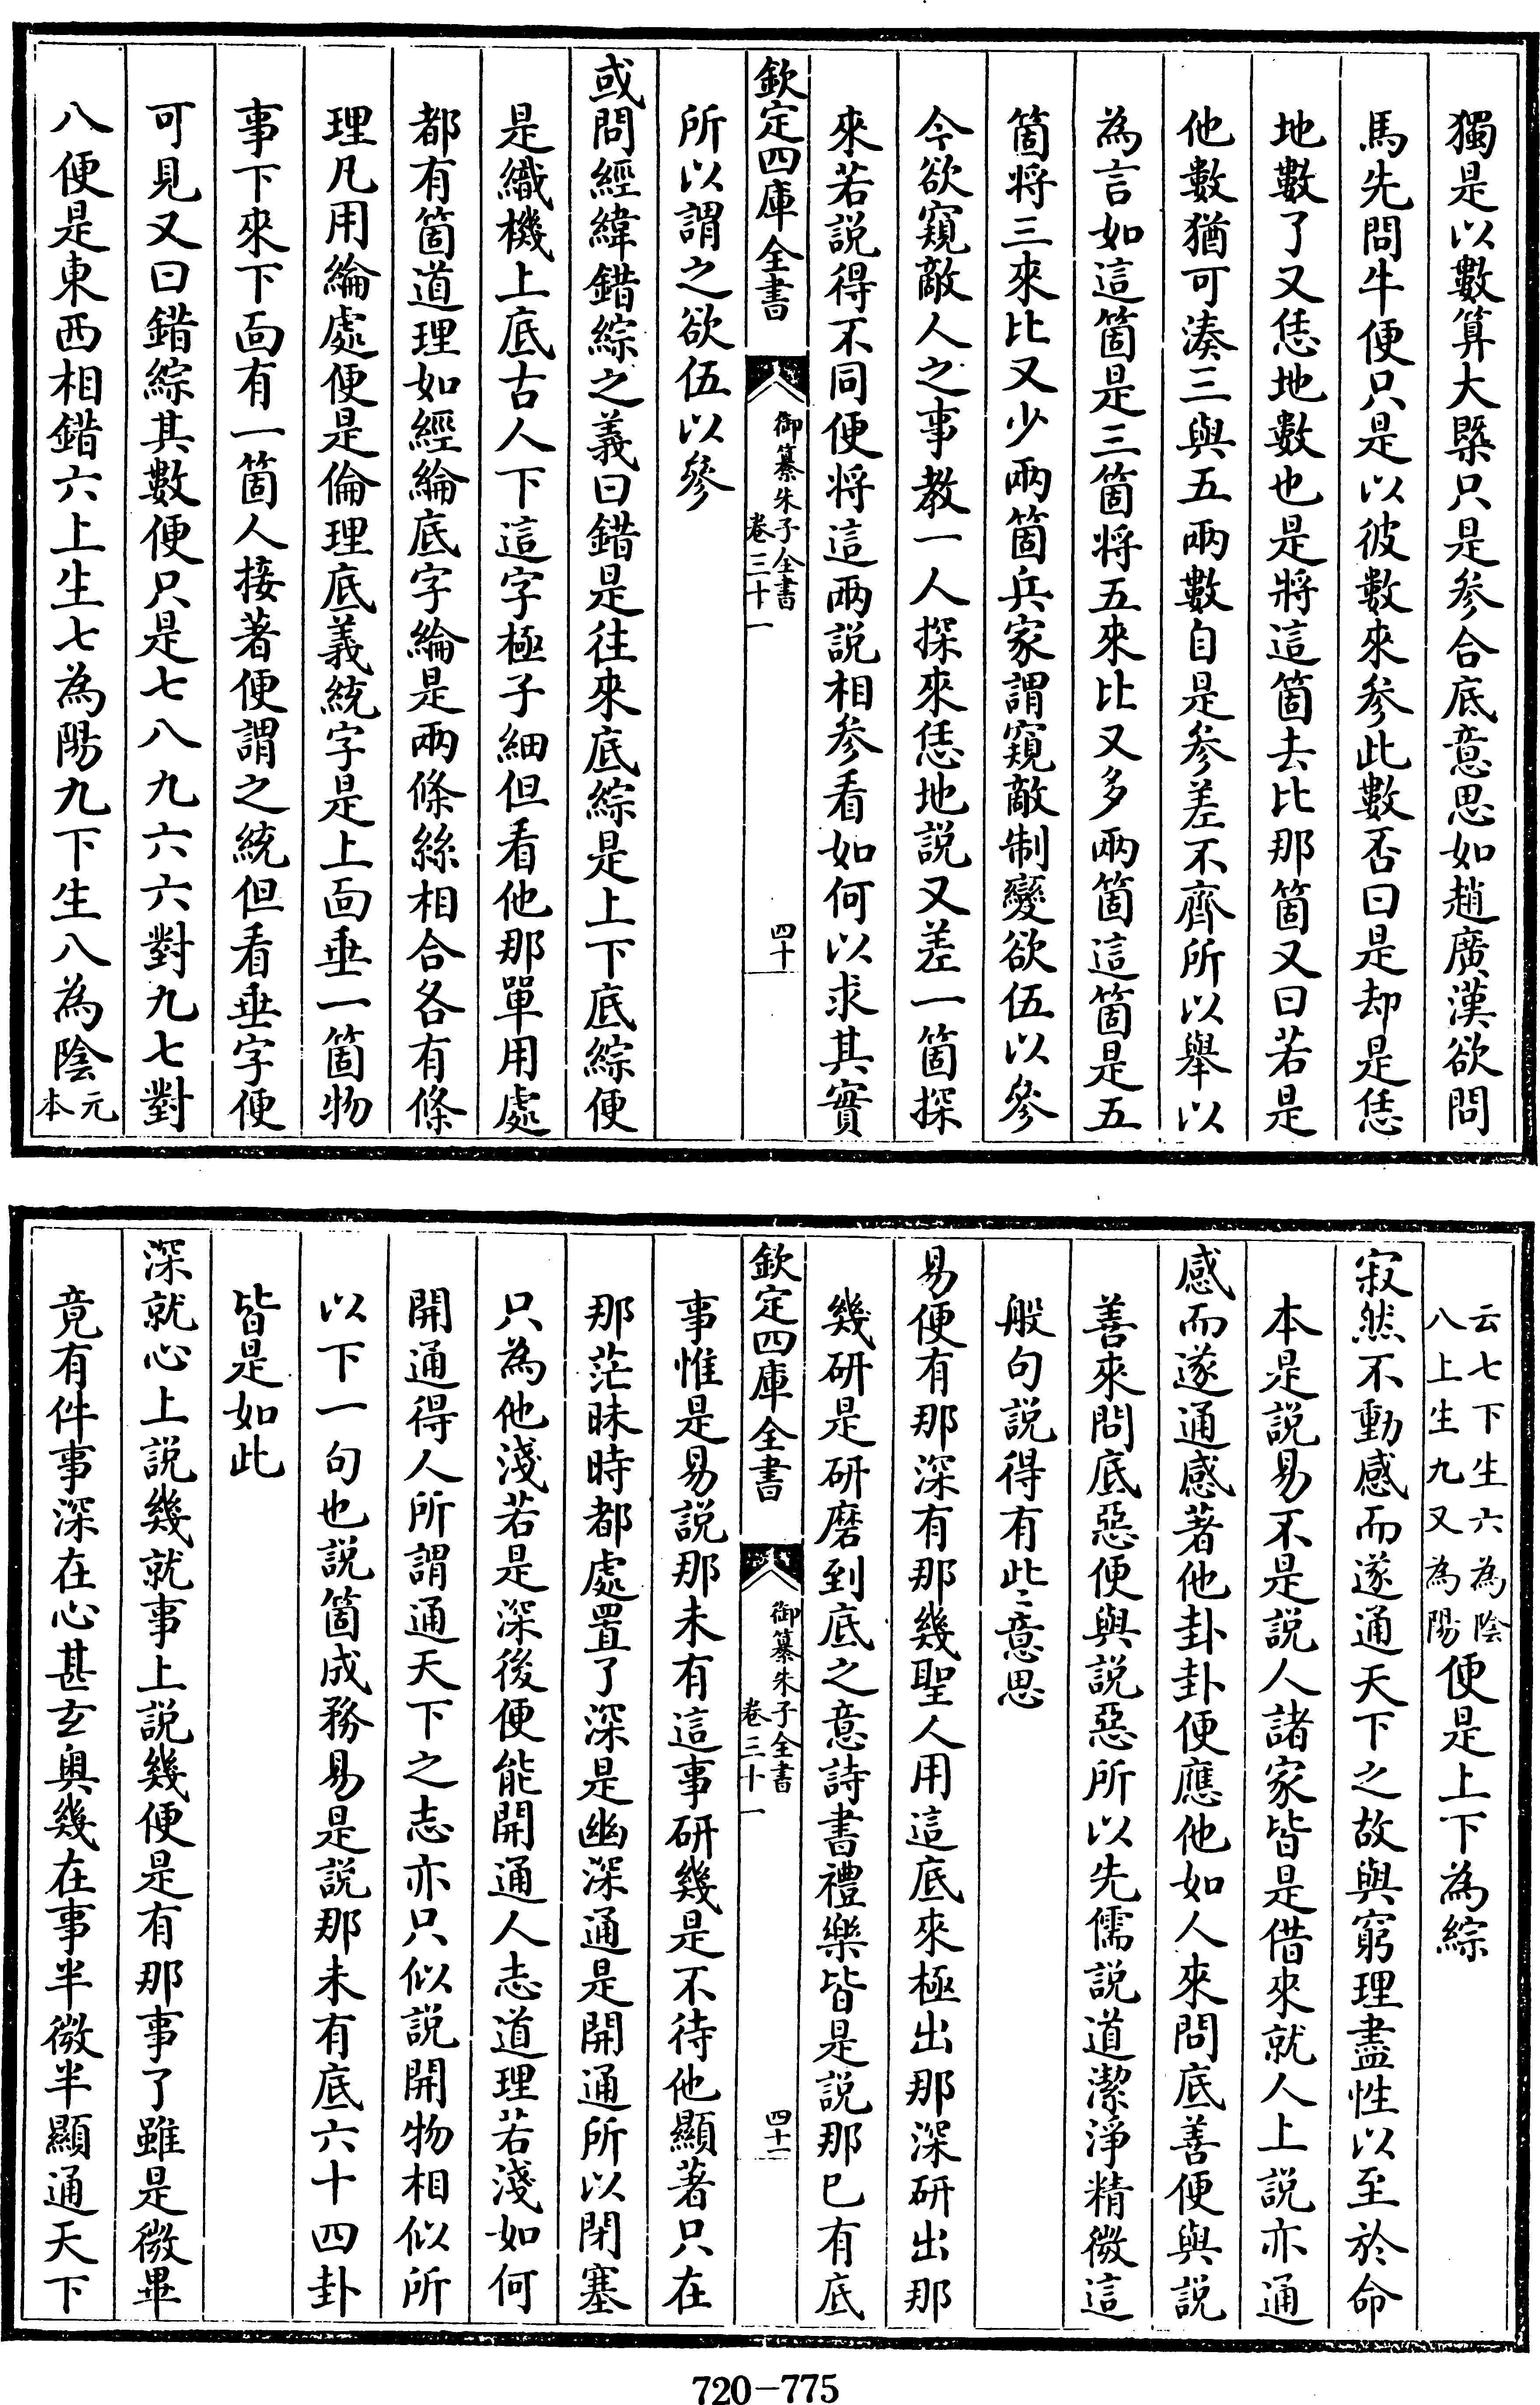 獨是以數算大槩只是參合底意思如趙廣漢欲問
馬先問牛便只是以彼數來參此數否曰是却是恁
地數了又恁地數也是將這箇去比那箇又曰若是
他數猶可湊三與五兩數自是參差不齊所以舉以
為言如這箇是三箇將五來比又多兩箇這箇是五
箇將三來比又少兩箇兵家謂窺敵制變欲伍以參
今欲窺敵人之事教一人探來恁地說又差一箇探
來若說得不同便將這兩說相參看如何以求其實
所以謂之欲伍以參
欽定四庫全書
御纂朱子全書
卷三十一
四十
或問經緯錯綜之義曰錯是往來底綜是上下底綜便
是織機上底古人下這字極子細但看他那單用處
都有箇道理如經綸底字綸是兩條絲相合各有條
理凡用綸處便是倫理底義統字是上面垂一箇物
事下來下面有一箇人接著便謂之統但看垂字便
可見又曰錯綜其數便只是七八九六六對九七對
八便是東西相錯六上生七為陽九下生八為陰元本
云七下生六為陰八上生九又為陽便是上下為綜
寂然不動感而遂通天下之故與窮理盡性以至於命
本是說易不是說人諸家皆是借來就人上說亦通
感而遂通感著他卦卦便應他如人來問底善便與說
善來問底惡便與說惡所以先儒說道潔淨精微這
般句說得有此二意思
易便有那深有那幾聖人用這底來極出那深研出那
幾研是研磨到底之意詩書禮樂皆是說那已有底
欽定四庫全書
御纂朱子全書
卷三十一
四十一
事惟是易說那未有這事研幾是不待他顯著只在
那茫昧時都處置了深是幽深通是開通所以閉塞
只為他淺若是深後便能開通人志道理若淺如何
開通得人所謂通天下之志亦只似說開物相似所
以下一句也說箇成務易是說那未有底六十四卦
皆是如此
深就心上說幾就事上說幾便是有那事了雖是微畢
竟有件事深在心甚玄奧幾在事半微半顯通天下
720-775